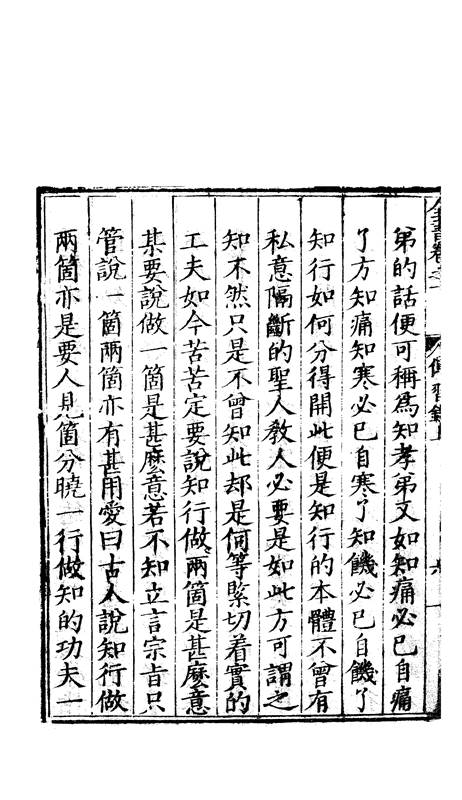 弟的話便可稱爲知孝弟又如知痛必已自痛
了方知痛知寒必已自寒了知饑必已自饑了
知行如何分得開此便是知行的本體不曾有
私意隔斷的聖人教人必要是如此方可謂之
知不然只是不曾知此却是何等緊切着實的
工夫如今苦苦定要說知行做兩箇是甚麽意
某要說做一箇是甚麽意若不知立言宗旨只
管說一箇兩箇亦有甚用愛曰古人說知行做
兩箇亦是要人見箇分曉一行做知的功夫一